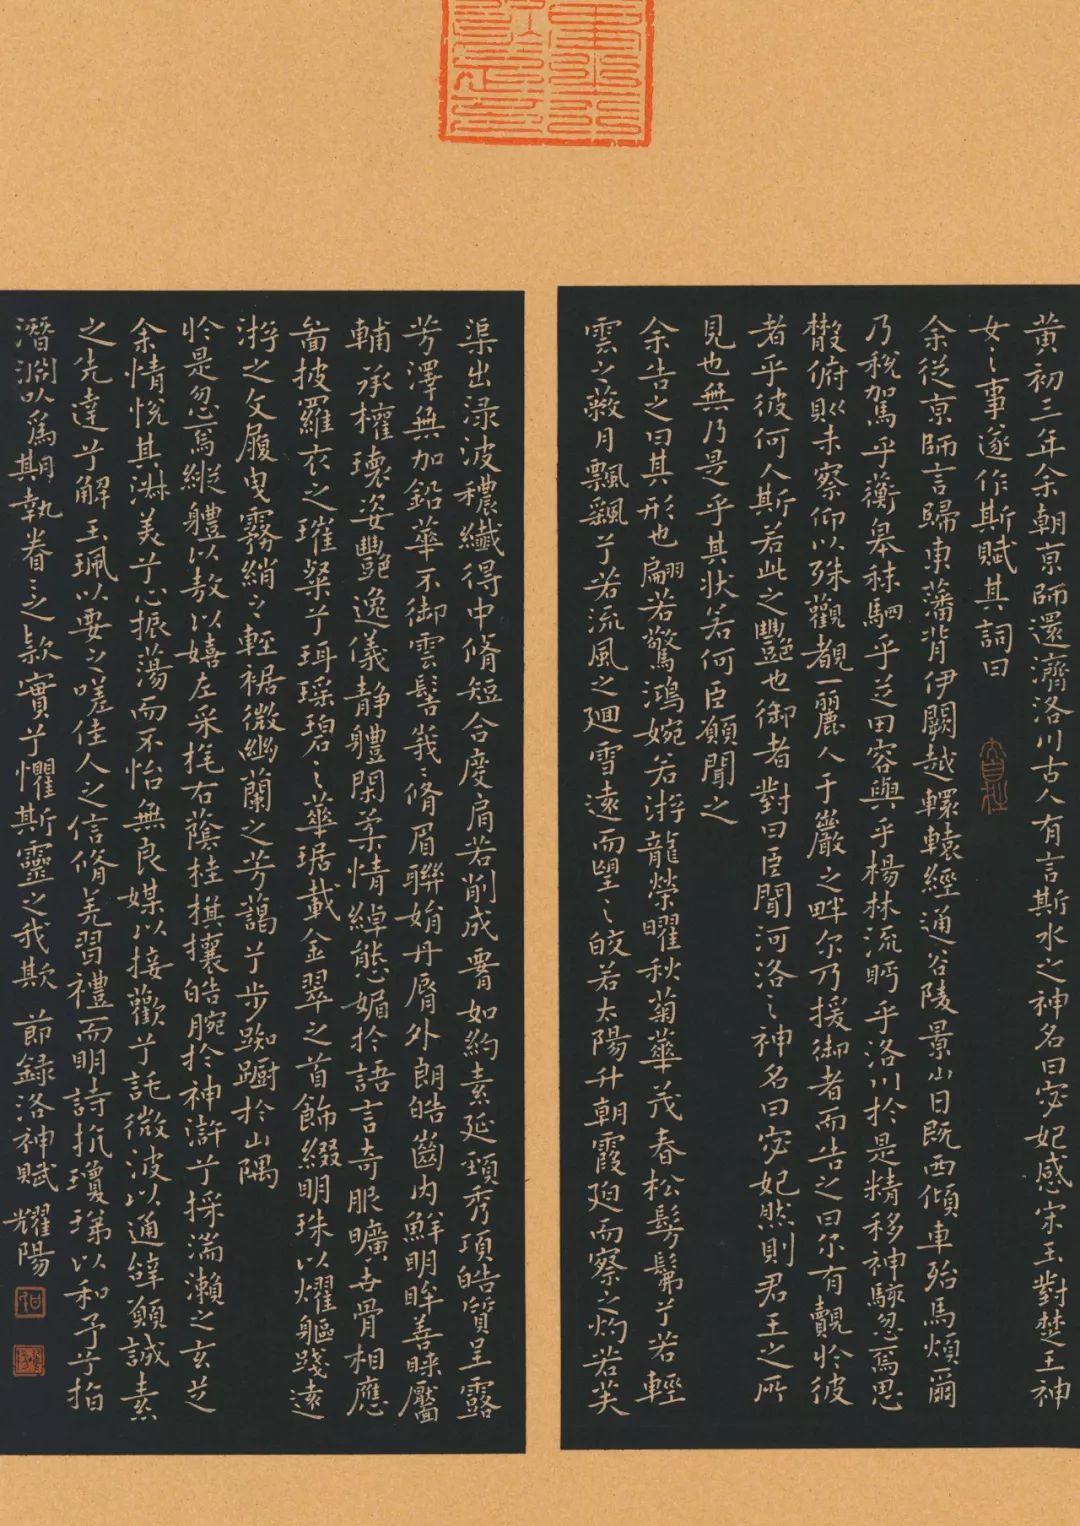 黄初三年余朝京師還濟洛川古人有言斯水之神名曰宓妃感宋玉對楚王神
女之事遂作斯賦其詞曰
余從京師言歸東藩背伊闕越轘轅經通谷陵景山日既西傾車殆馬煩爾
乃稅駕乎蘅皋秣駟乎芝田容與乎楊林流眄乎洛川於是精移神駭忽焉思
散俯則未察仰以殊觀覩一麗人于巖之畔尔乃援御者而告之曰尔有覿於彼
者乎彼何人斯若此之豔也御者對曰臣聞河洛之神名曰宓妃然則君王之所
見也無乃是乎其狀若何臣願聞之
余告之曰其形也翩若驚鴻婉若游龍榮曜秋菊華茂春松髣髴兮若輕
雲之蔽月飄飄兮若流風之廻雪遠而望之皎若太陽升朝霞迫而察之灼若芙
渠出渌波穠纖得中脩短合度肩若削成腰如約素延頸秀項皓質呈露
芳澤無加鉛華不御雲髻峩峩脩眉聯娟丹脣外朗皓齒内鮮明眸善睞靨
輔承權瓌姿豔逸儀静體閑柔情綽態媚於語言奇服曠世骨相應
圖披羅衣之璀粲兮珥瑶碧之華琚載金翠之首飾綴明珠以燿軀踐遠
游之文履曳霧綃之輕裾微幽蘭之芳藹兮步踟躕於山隅
於是忽焉縱體以敖以嬉左采旄右蔭桂棋攘皓腕於神滸兮採湍瀨之玄芝
余情悅其淋美兮心振蕩而不怡無良媒以接歡兮託微波以通辭願誠素
之先達兮解玉珮以要之嗟佳人之信脩羌習禮而明詩抗瓊珶以和予兮指
潛淵以爲期執眷眷之款實兮懼斯靈之我欺 節録洛神賦 耀陽